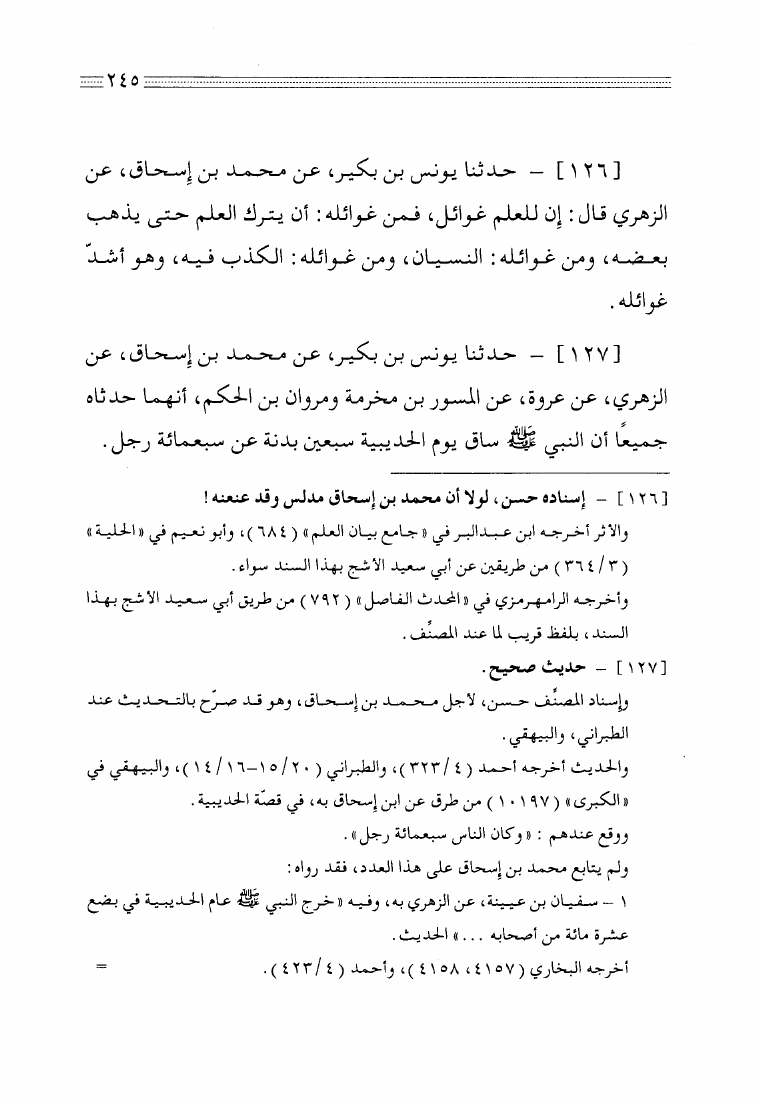 ٢٤٥
[١٢٦] - حدثنا يونس بن بكير، عن محمد بن إسحاق، عن
الزهري قال: إن للعلم غوائل، فمن غوائله: أن يترك العلم حتى يذهب
بعضه، ومن غوائله: النسيان، ومن غوائله: الكذب فيه، وهو أشدّ
غوائله.
[١٢٧] - حدثنا يونس بن بكير، عن محمد بن إسحاق، عن
الزهري، عن عروة، عن المسور بن مخرمة ومروان بن الحكم، أنهما حدثاه
جميعاً أن النبي ﷺ ساق يوم الحديبية سبعين بدنة عن سبعمائة رجل.
[١٢٦] - إسناده حسن، لولا أن محمد بن إسحاق مدلس وقد عنعنه!
والأثر أخرجه ابن عبدالبر في «جامع بيان العلم» (٦٨٤)، وأبو نعيم في «الحلية»
(٣/٣٦٤) من طريقين عن أبي سعيد الأشج بهذا السند سواء.
وأخرجه الرامهرمزي في «المحدث الفاصل» (٧٩٢) من طريق أبي سعيد الأشج بهذا
السند، بلفظ قريب لما عند المصنِّف.
[١٢٧] - حديث صحيح.
وإسناد المصنِّف حسن، لأجل محمد بن إسحاق، وهو قد صرّح بالتحديث عند
الطبراني، والبيهقي.
والحديث أخرجه أحمد (٤/٣٢٣)، والطبراني (٢٠/١٥-١٦/١٤)، والبيهقي في
«الكبرى» (١٠١٩٧) من طرق عن ابن إسحاق به، في قصّة الحديبية.
ووقع عندهم: «وكان الناس سبعمائة رجل».
ولم يتابع محمد بن إسحاق على هذا العدد، فقد رواه:
١ - سفيان بن عيينة، عن الزهري به، وفيه «خرج النبي ﷺ عام الحديبية في بضع
عشرة مائة من أصحابه ...» الحديث.
أخرجه البخاري (٤١٥٧، ٤١٥٨)، وأحمد (٤/٤٢٣). =